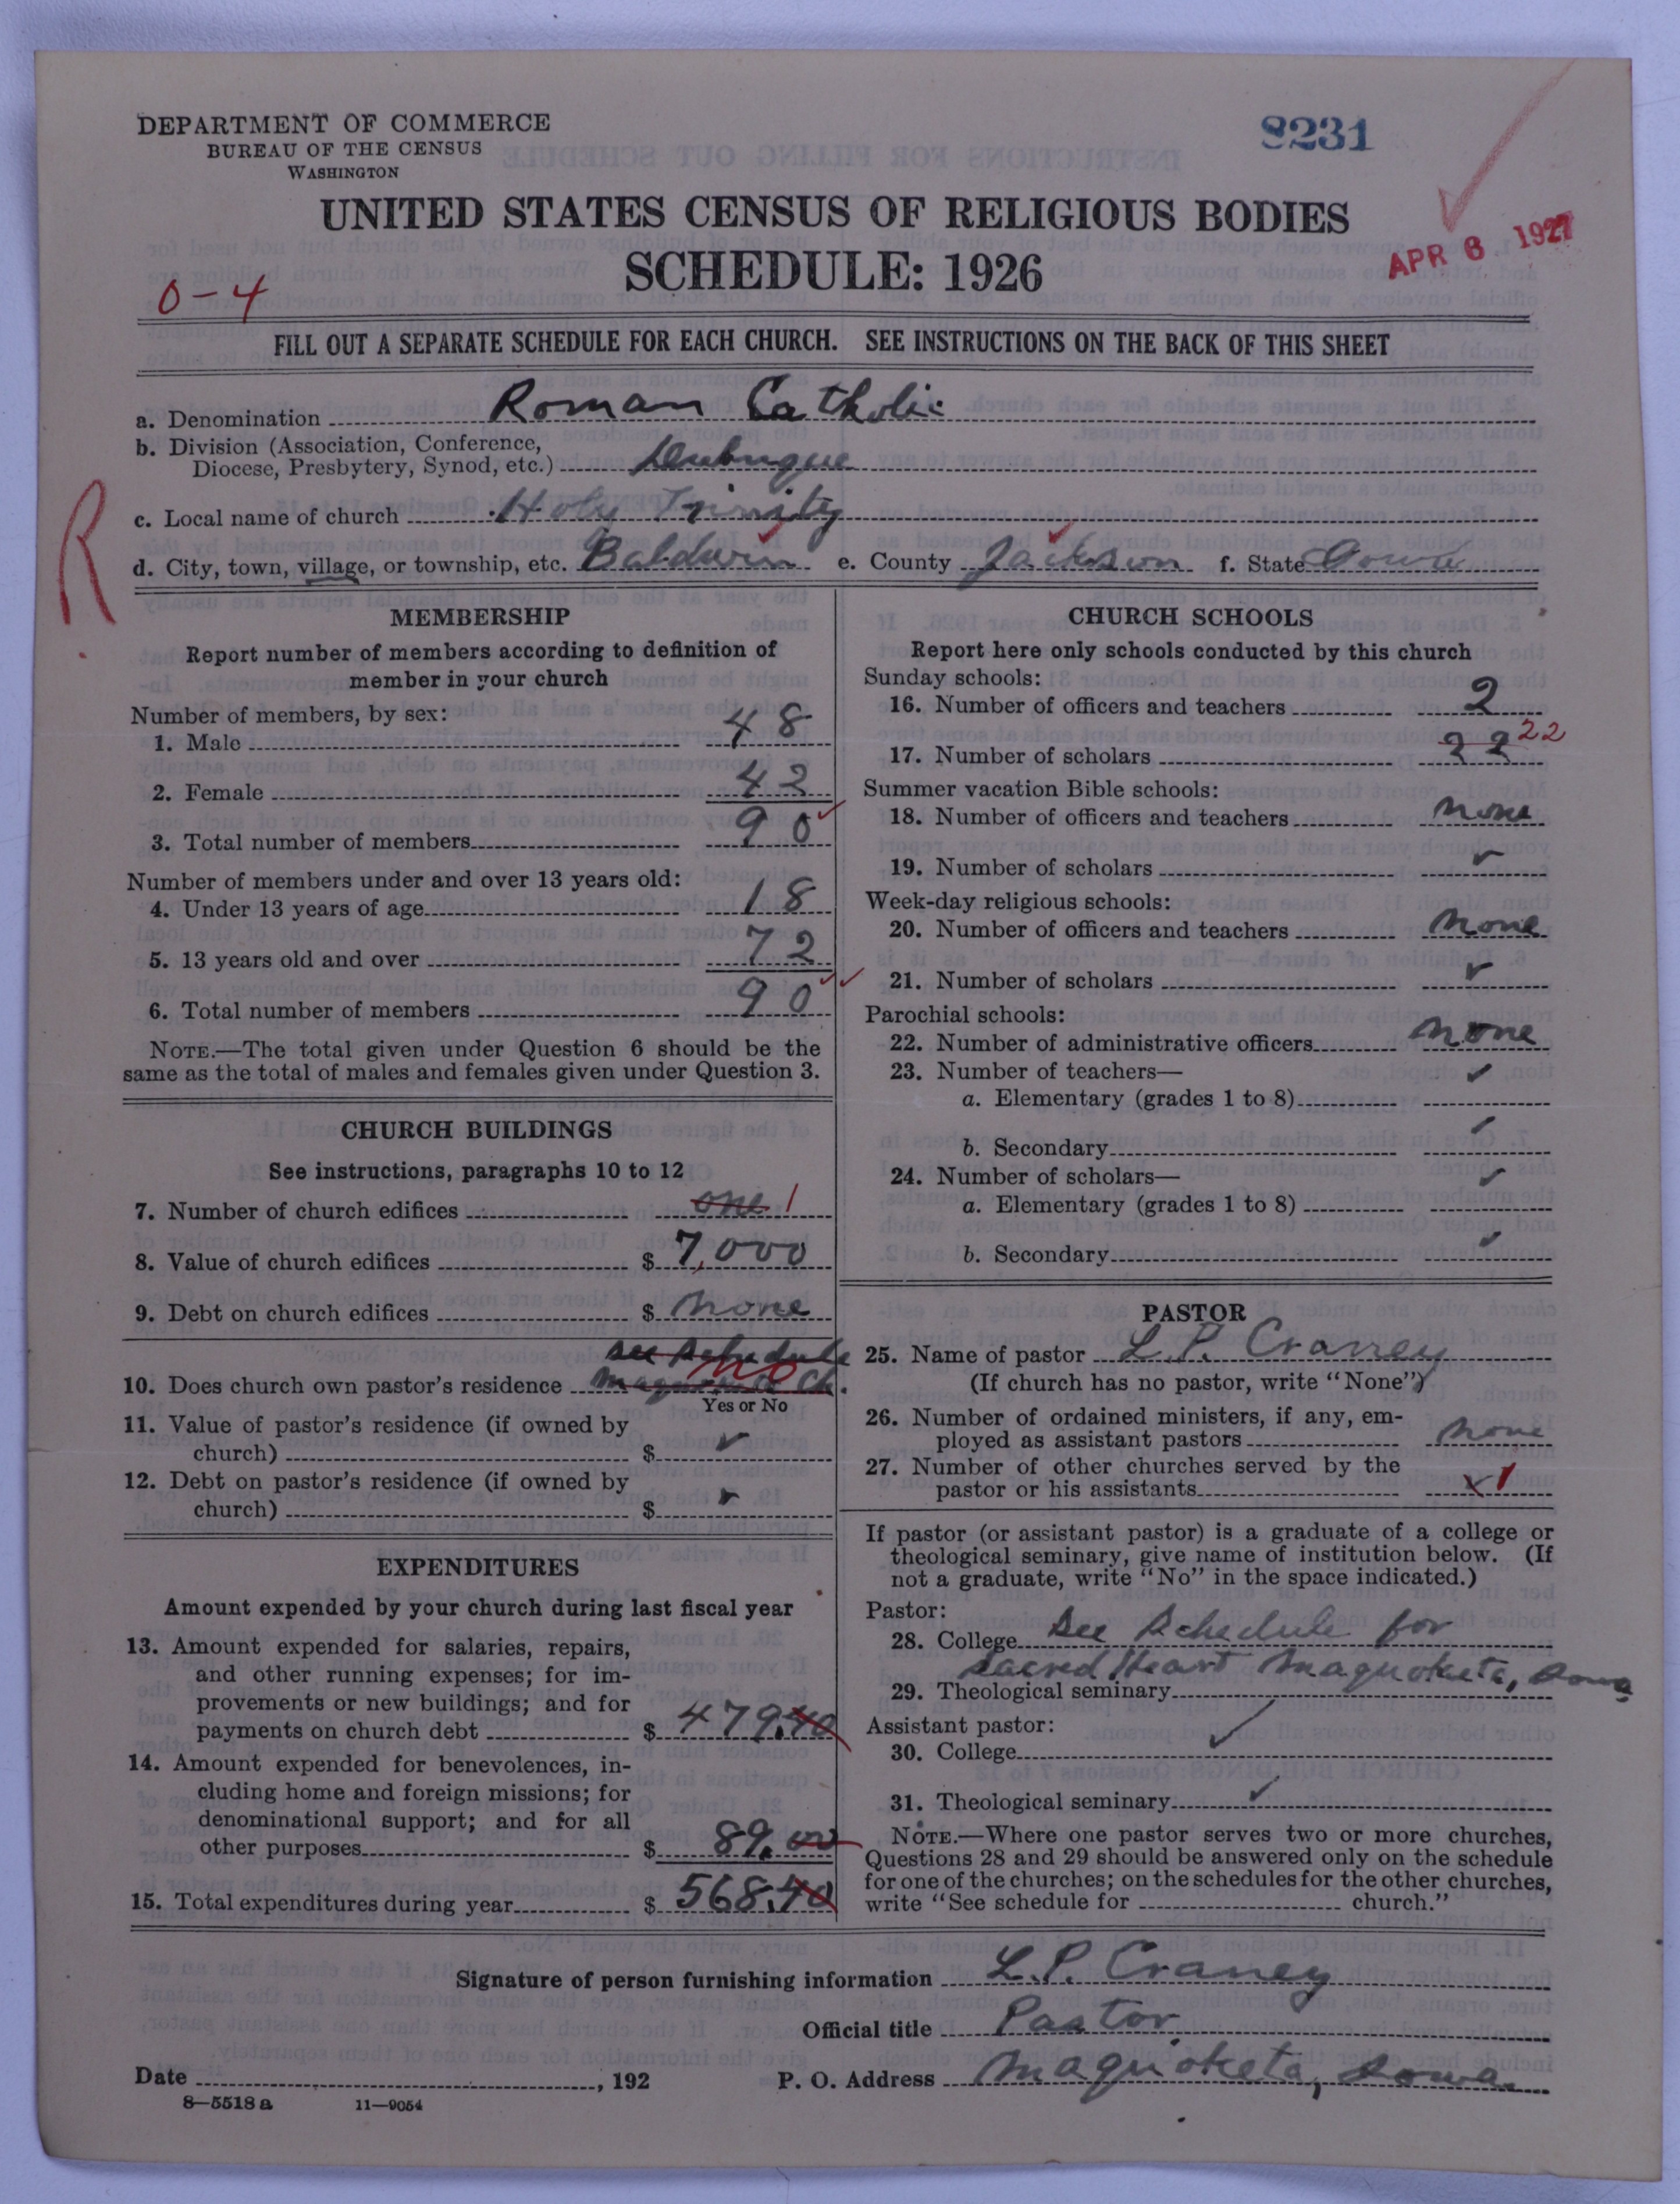 DEPARTMENT OF COMMERCE
BUREAU OF THE CENSUS
WASHINGTON
8231
UNITED STATES CENSUS OF RELIGIOUS BODIES
SCHEDULE: 1926
APR 8 1927
0-4
FILL OUT A SEPARATE SCHEDULE FOR EACH CHURCH. SEE INSTRUCTIONS ON THE BACK OF THIS SHEET
a. Denomination Roman Catholic
b. Division (Association, Conference,
Diocese, Presbytery, Synod, etc.) Dubuque
R
c. Local name of church Holy Trinity
d. City, town, village, or township, etc. Baldwin e. County Jackson f. State Iowa
MEMBERSHIP
Report number of members according to definition of
member in your church
Number of members, by sex:
1. Male 48
2. Female 42
3. Total number of members 90
Number of members under and over 13 years old:
4. Under 13 years of age 18
5. 13 years old and over 72
6. Total number of members 90
NOTE.—The total given under Question 6 should be the
same as the total of males and females given under Question 3.
CHURCH BUILDINGS
See instructions, paragraphs 10 to 12
7. Number of church edifices one 1
8. Value of church edifices $ 7,000
9. Debt on church edifices $ none
see schedule
10. Does church own pastor's residence Maquoketa Ch. no
Yes or No
11. Value of pastor's residence (if owned by
church) $
12. Debt on pastor's residence (if owned by
church) $
EXPENDITURES
Amount expended by your church during last fiscal year
13. Amount expended for salaries, repairs,
and other running expenses; for im-
provements or new buildings; and for
payments on church debt $ 479.40
14. Amount expended for benevolences, in-
cluding home and foreign missions; for
denominational support; and for all
other purposes $ 89.00
15. Total expenditures during year $ 568.40
CHURCH SCHOOLS
Report here only schools conducted by this church
Sunday schools:
16. Number of officers and teachers 2
17. Number of scholars 22 22
Summer vacation Bible schools:
18. Number of officers and teachers none
19. Number of scholars
Week-day religious schools:
20. Number of officers and teachers none
21. Number of scholars
Parochial schools:
22. Number of administrative officers none
23. Number of teachers—
a. Elementary (grades 1 to 8)
b. Secondary
24. Number of scholars—
a. Elementary (grades 1 to 8)
b. Secondary
PASTOR
25. Name of pastor L.P. Craney
(If church has no pastor, write "None")
26. Number of ordained ministers, if any, em-
ployed as assistant pastors none
27. Number of other churches served by the
pastor or his assistants 1
If pastor (or assistant pastor) is a graduate of a college or
theological seminary, give name of institution below. (If
not a graduate, write "No" in the space indicated.)
Pastor:
28. College See Schedule for
Sacred Heart Maquoketa, Iowa
29. Theological seminary
Assistant pastor:
30. College
31. Theological seminary
NOTE.—Where one pastor serves two or more churches,
Questions 28 and 29 should be answered only on the schedule
for one of the churches; on the schedules for the other churches,
write "See schedule for church."
Signature of person furnishing information L.P. Craney
Official title Pastor
Date , 192 P. O. Address Maquoketa, Iowa
8—5518 a 11—9054